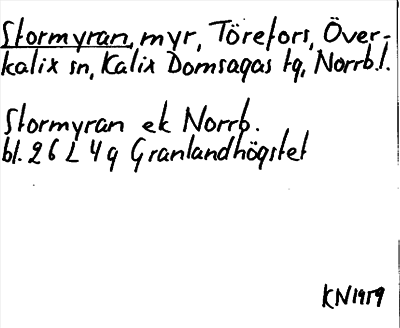 Stormyran, myr, Törefors, Över-
kalix sn, Kalix Domsagas tg, Norrb.l.
Stormyran ek Norrb.
bl. 26 L 4 g Granlandhögstet
KN1959